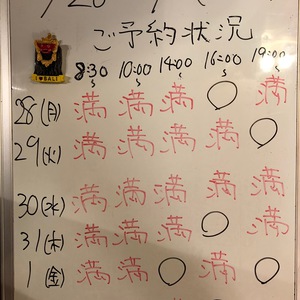 ご予約状況
I ♥ BALI
8:30〜 10:00〜 14:00〜 16:00〜 19:00〜
28(月) 満 満 満 ○ 満
29(火) 満 満 満 満 ○
30(水) 満 満 満 満 満
31(木) 満 満 満 ○ 満
1(金) 満 満 ○ 満 ○